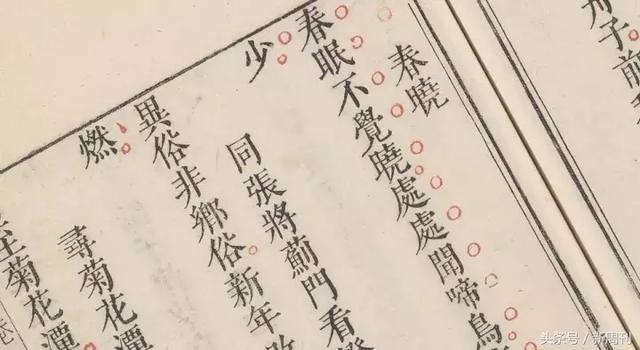 子前
春曉
春眠不覺曉處處聞啼鳥
少
同張將薊門看
異俗非鄉俗新年
燃
尋菊花潭
至菊花潭
头条号 / 新周刊